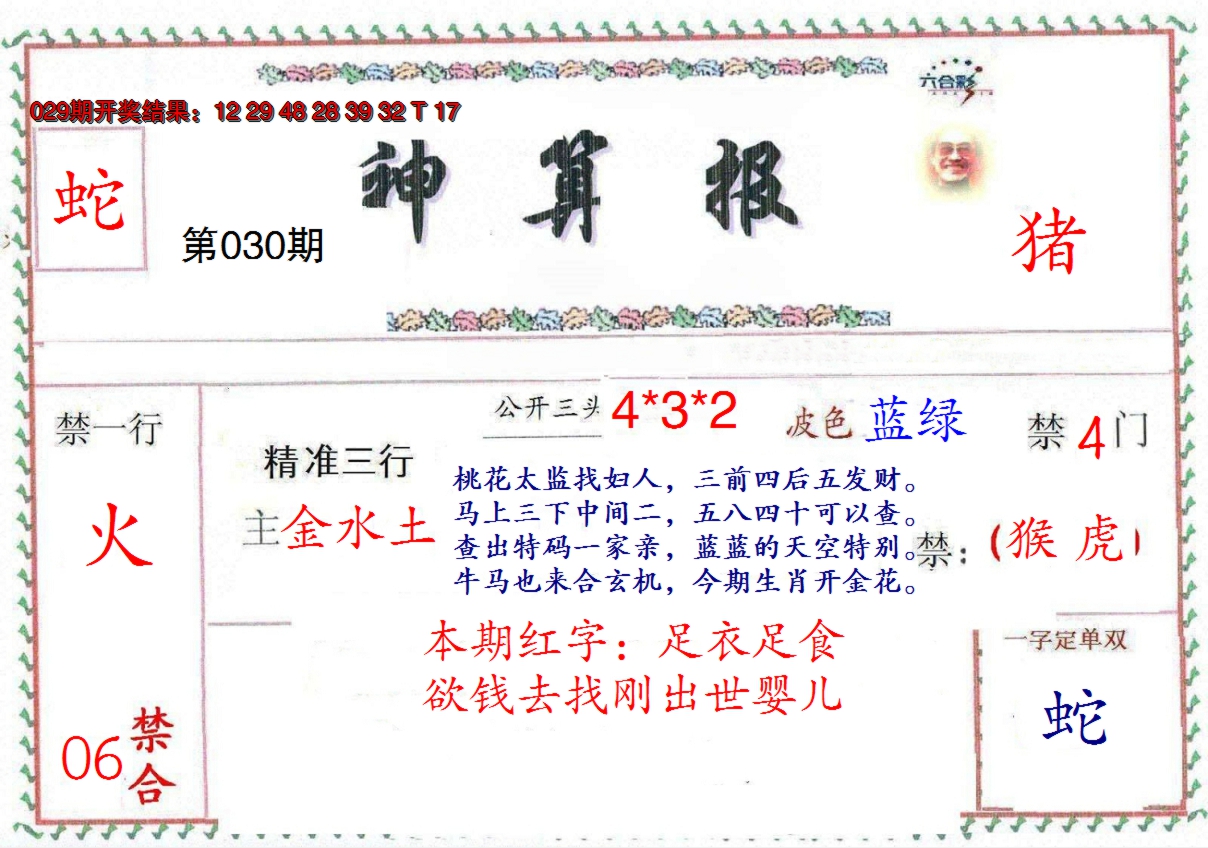 六合彩
029期开奖结果：12 29 48 28 39 32 T 17
神算报
蛇
第030期
猪
禁一行
火
06 禁合
精准三行
主金水土
公开三头 4*3*2
波色 蓝绿
禁4门
禁：（猴 虎）
桃花太监找妇人，三前四后五发财。
马上三下中间二，五八四十可以查。
查出特码一家亲，蓝蓝的天空特别。
牛马也来合玄机，今期生肖开金花。
本期红字：足衣足食
欲钱去找刚出世婴儿
一字定单双
蛇